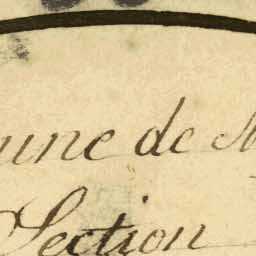 une de
Section